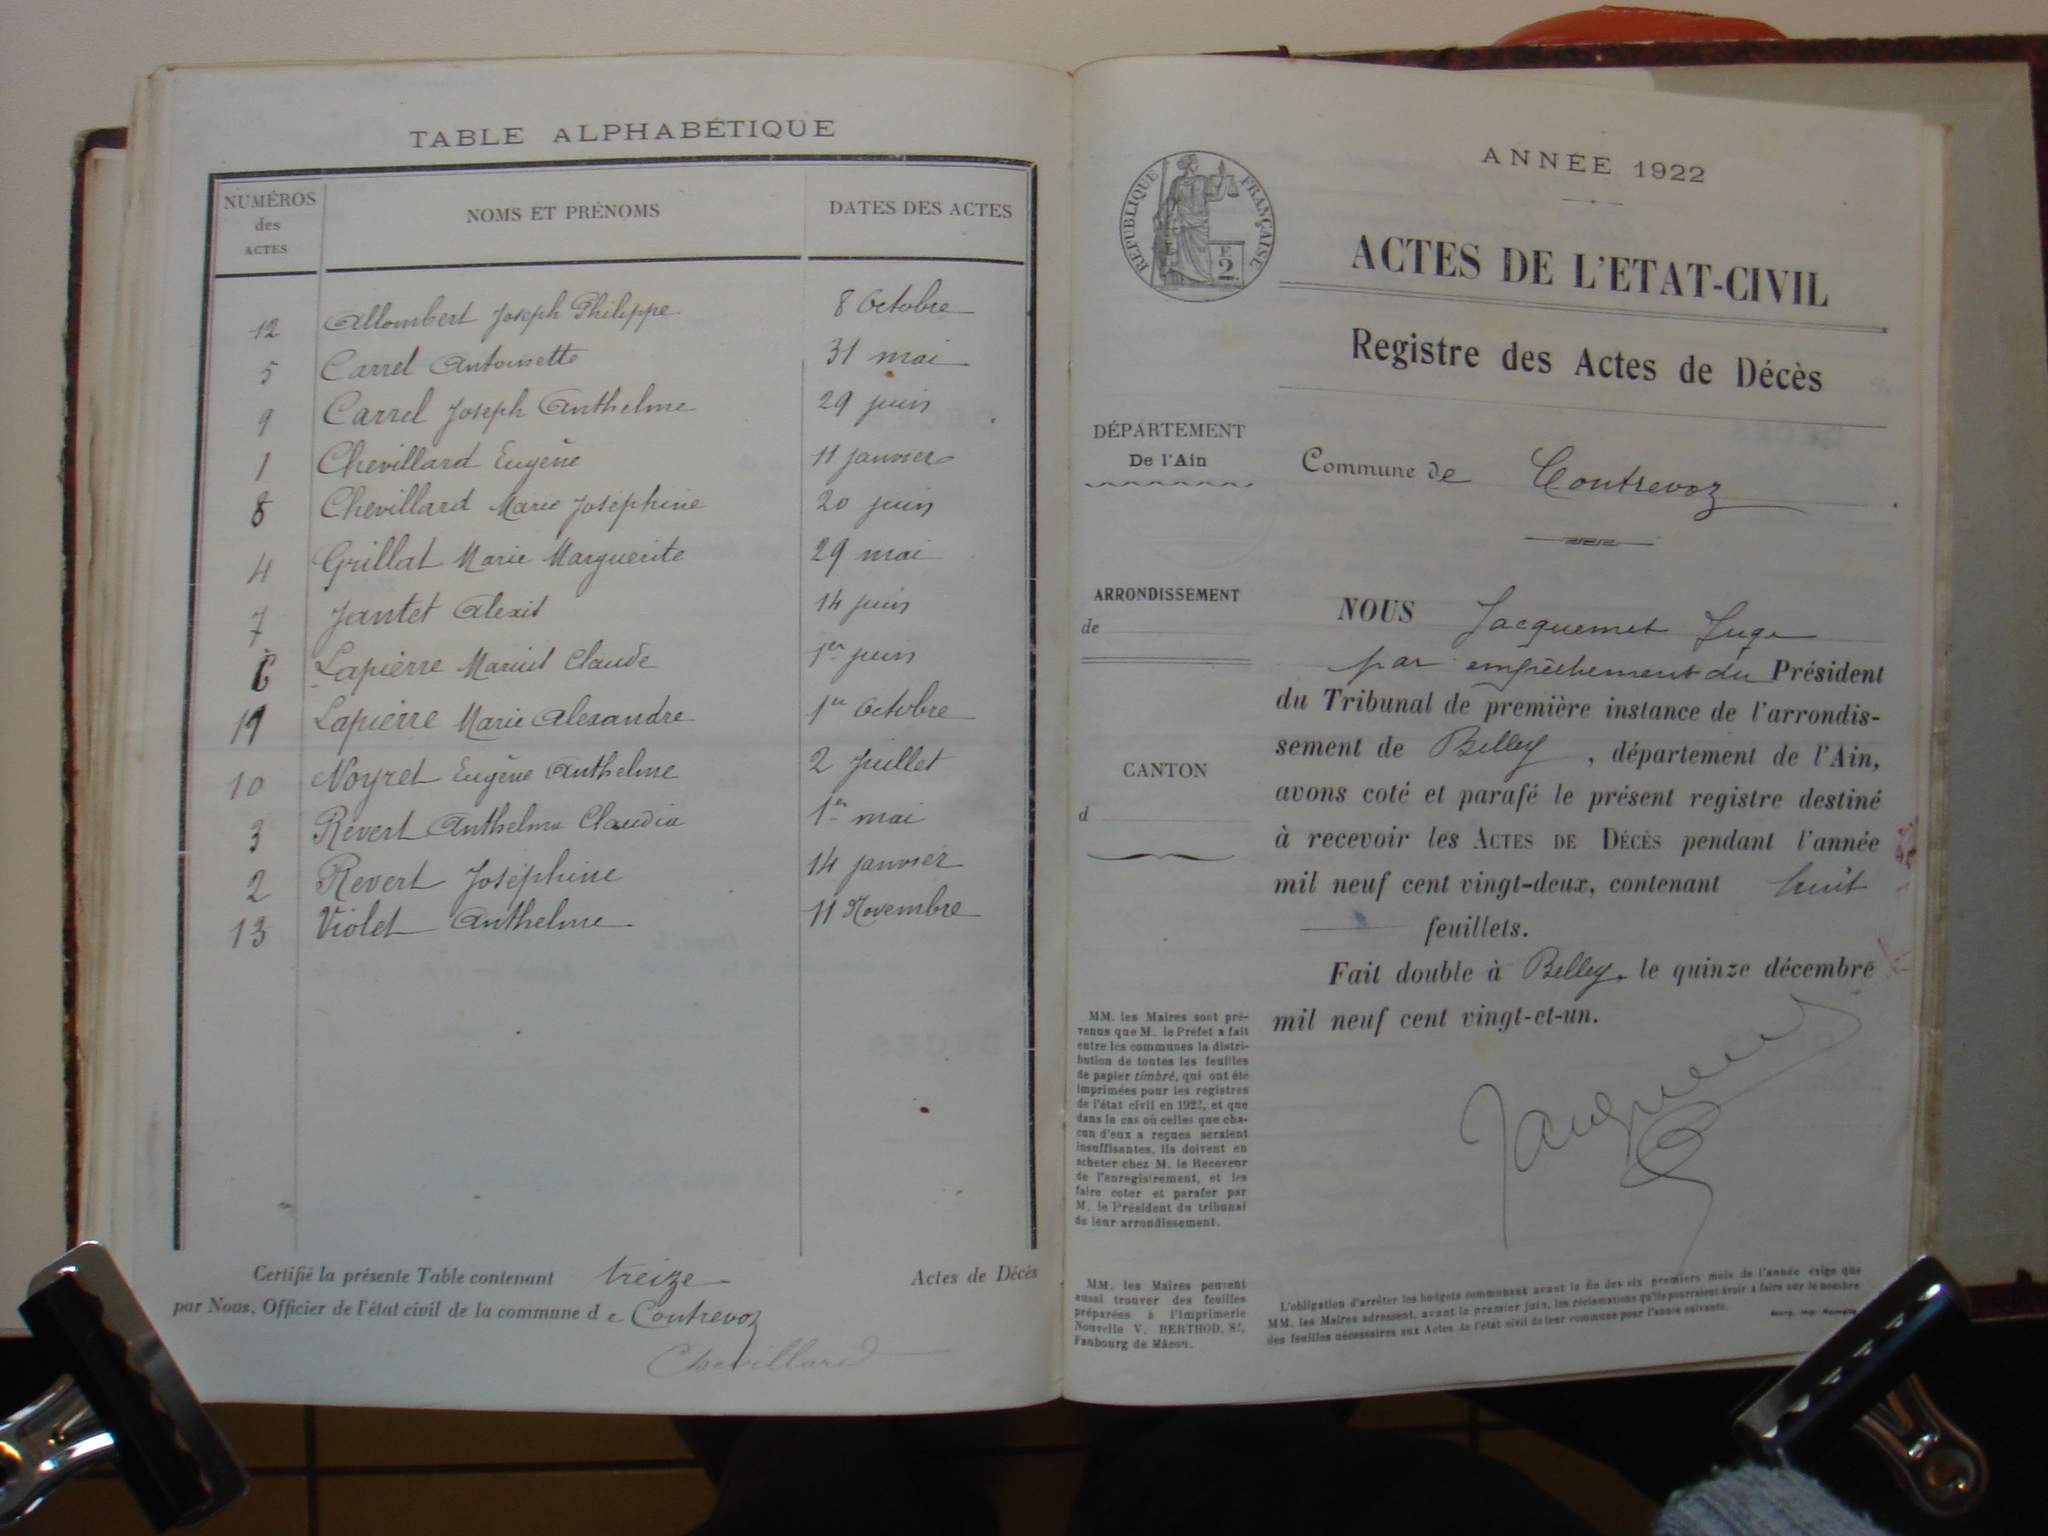 TABLE ALPHABÉTIQUE
NUMÉROS des ACTES NOMS ET PRÉNOMS DATES DES ACTES
12 Allombert Joseph Philippe 8 Octobre
5 Carrel Antoinette 31 mai
9 Carrel Joseph Anthelme 29 juin
1 Chevillard Eugène 11 janvier
8 Chevillard Marie Joséphine 20 juin
4 Grillat Marie Marguerite 29 mai
7 Jantet Alexis 14 juin
6 Lapierre Marius Claude 1er juin
11 Lapierre Marie Alexandre 1er Octobre
10 Noyret Eugène Anthelme 2 Juillet
3 Revert Anthelma Claudia 1er mai
2 Revert Joséphine 14 janvier
13 Violet Anthelme 11 Novembre
Certifié la présente Table contenant treize Actes de Décès
par Nous, Officier de l'état civil de la commune d e Contrevoz
Chevillard
ANNÉE 1922
RÉPUBLIQUE FRANÇAISE
F.
2
ACTES DE L'ETAT-CIVIL
Registre des Actes de Décès
DÉPARTEMENT
De l'Ain
Commune de Contrevoz
ARRONDISSEMENT
de
CANTON
d
NOUS Jacquemet Juge
par empêchement du Président
du Tribunal de première instance de l'arrondis-
sement de Belley, département de l'Ain,
avons coté et parafé le présent registre destiné
à recevoir les ACTES DE DÉCÈS pendant l'année
mil neuf cent vingt-deux, contenant huit
feuillets.
Fait double à Belley, le quinze décembre
mil neuf cent vingt-et-un.
Jacquemet
MM. les Maires sont pré-
venus que M. le Préfet a fait
entre les communes la distri-
bution de toutes les feuilles
de papier timbré, qui ont été
imprimées pour les registres
de l'état civil en 1922, et que
dans le cas où celles que cha-
cun d'eux a reçues seraient
insuffisantes, ils doivent en
acheter chez M. le Receveur
de l'enregistrement, et les
faire coter et parafer par
M. le Président du tribunal
de leur arrondissement.
MM. les Maires peuvent
aussi trouver des feuilles
préparées à l'Imprimerie
Nouvelle V. BERTHOD, 8,
Faubourg de Mâcon.
L'obligation d'arrêter les budgets communaux avant la fin des six premiers mois de l'année exige que
MM. les Maires adressent, avant le premier juin, les réclamations qu'ils pourraient avoir à faire sur le nombre
des feuilles nécessaires aux Actes de l'état civil de leur commune pour l'année suivante.